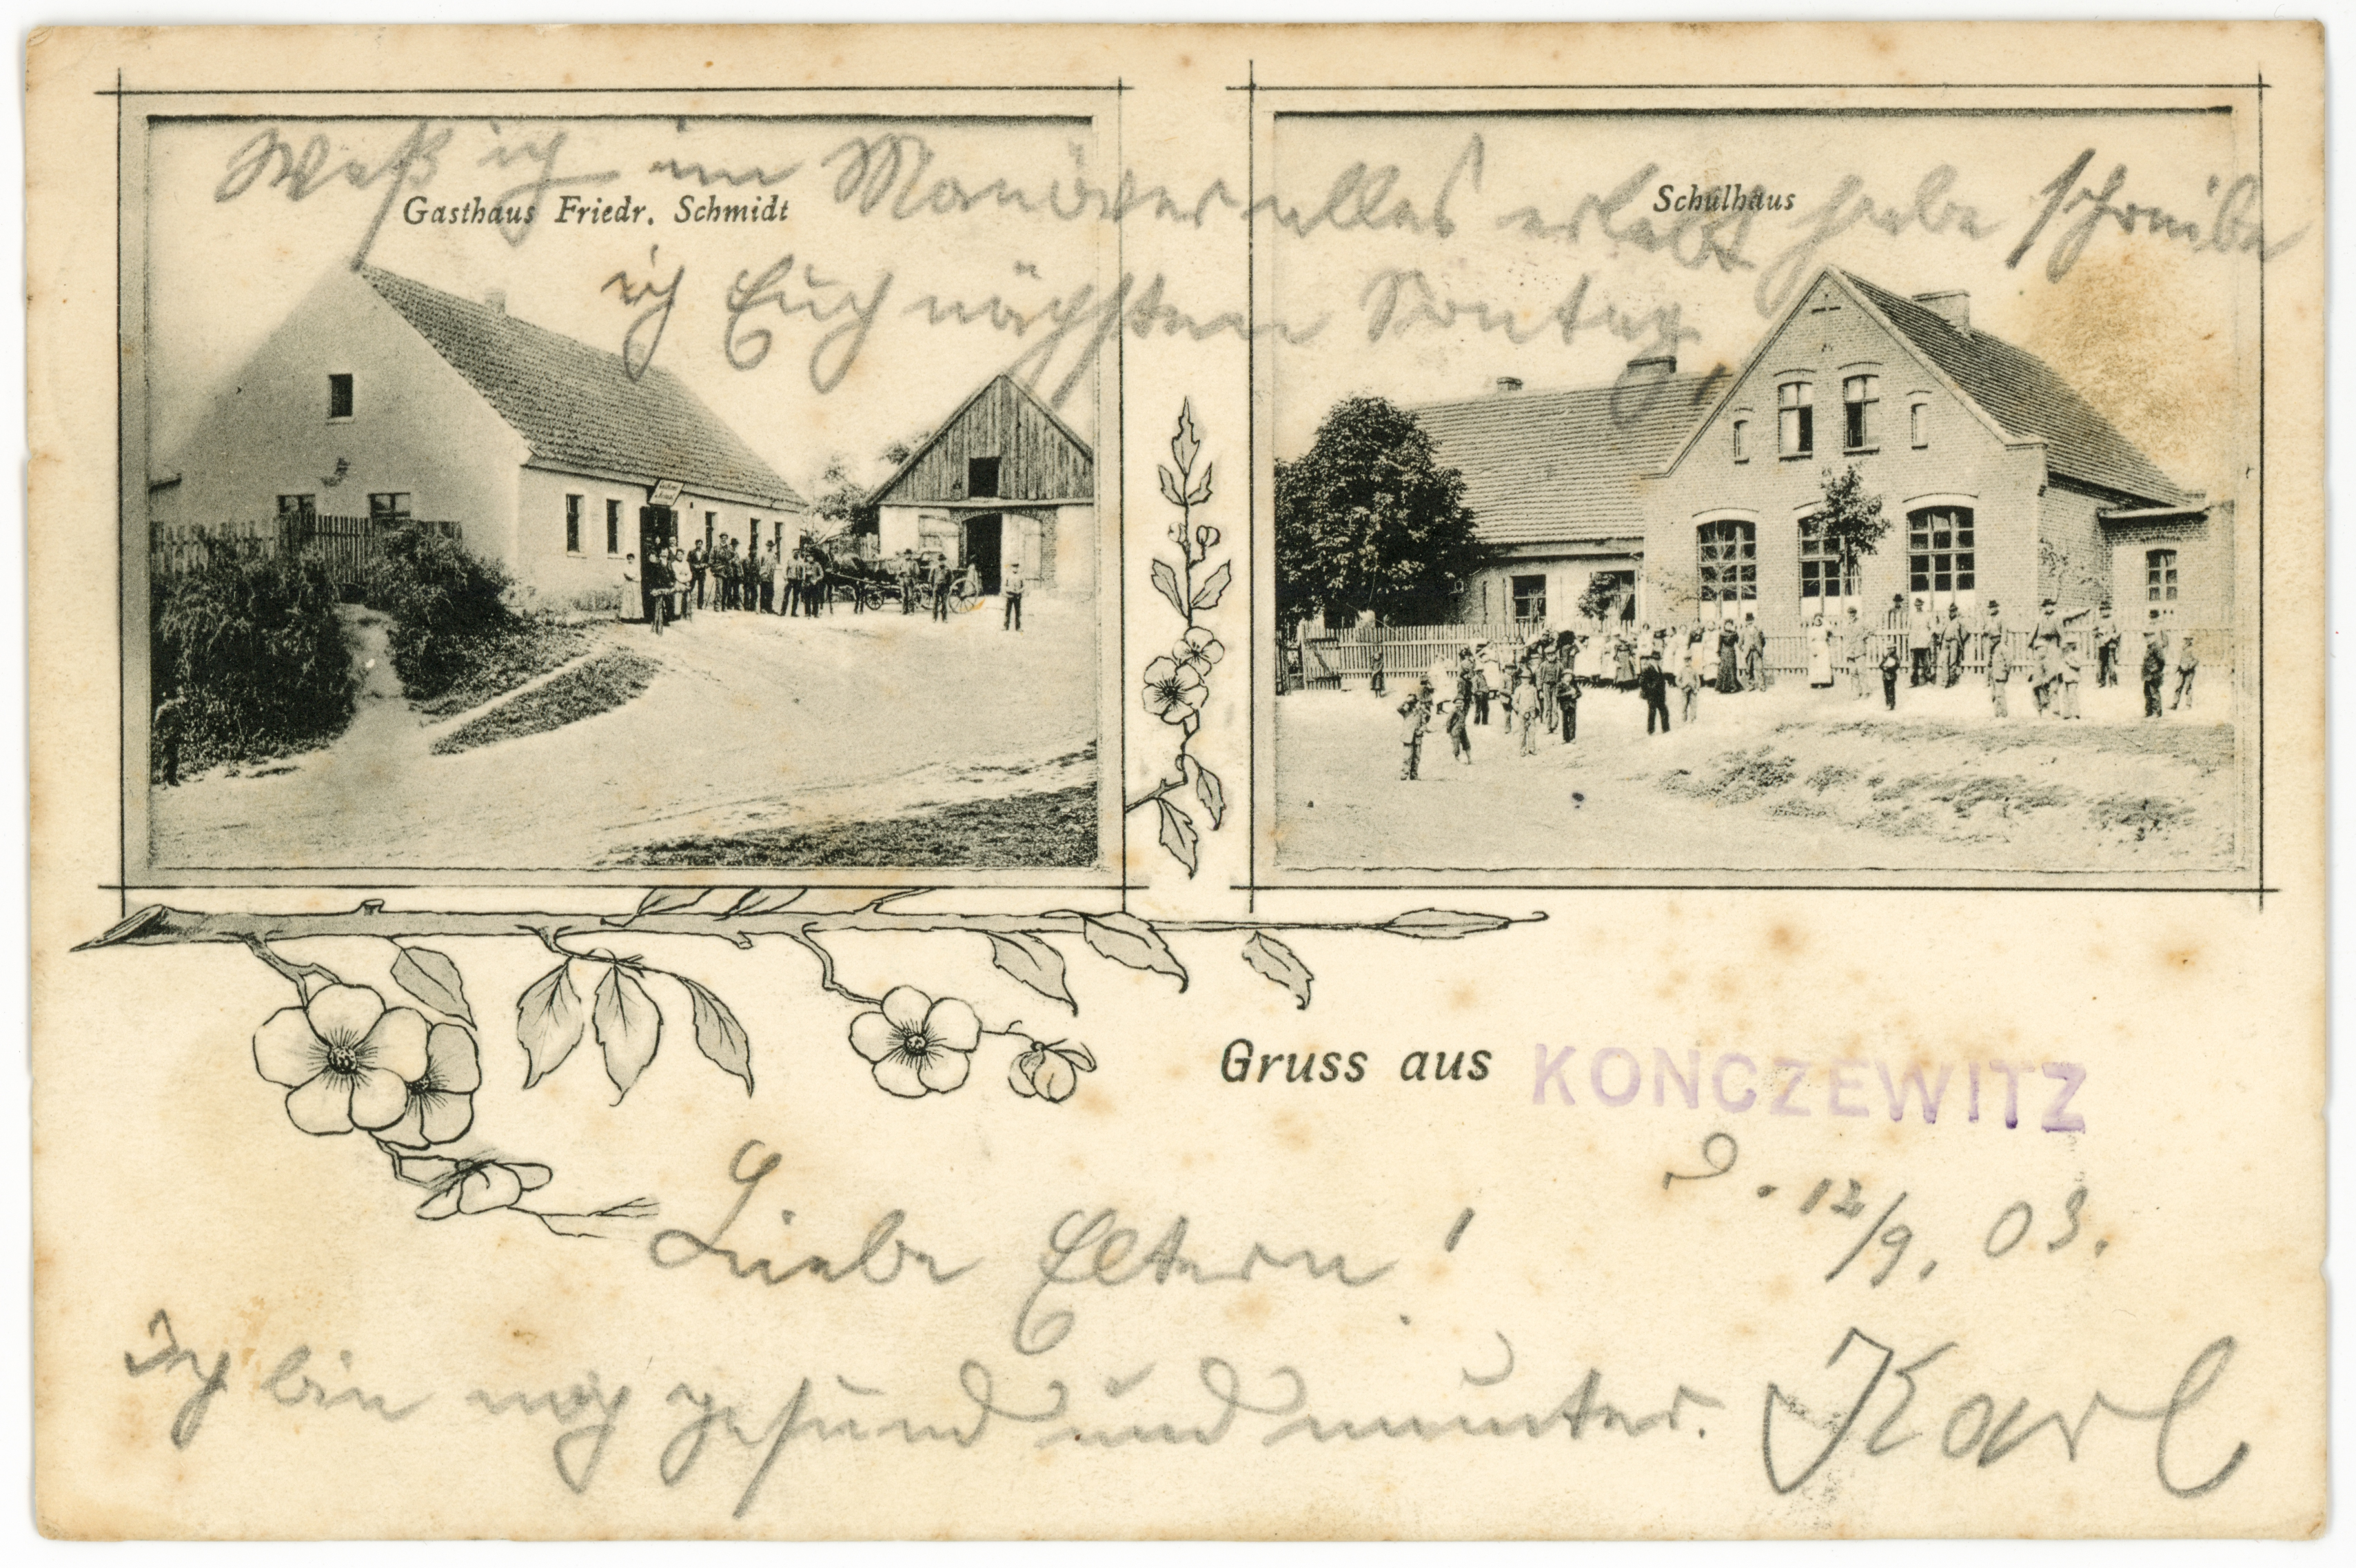 Waß ich im Manöver alles erlebt habe schreibe
Gasthaus Friedr. Schmidt
Schulhaus
ich Euch nächsten Sontag,
Gruss aus KONCZEWITZ
D. 12/9. 03.
Liebe Eltern!
Ich bin noch gesund und munter. Karl